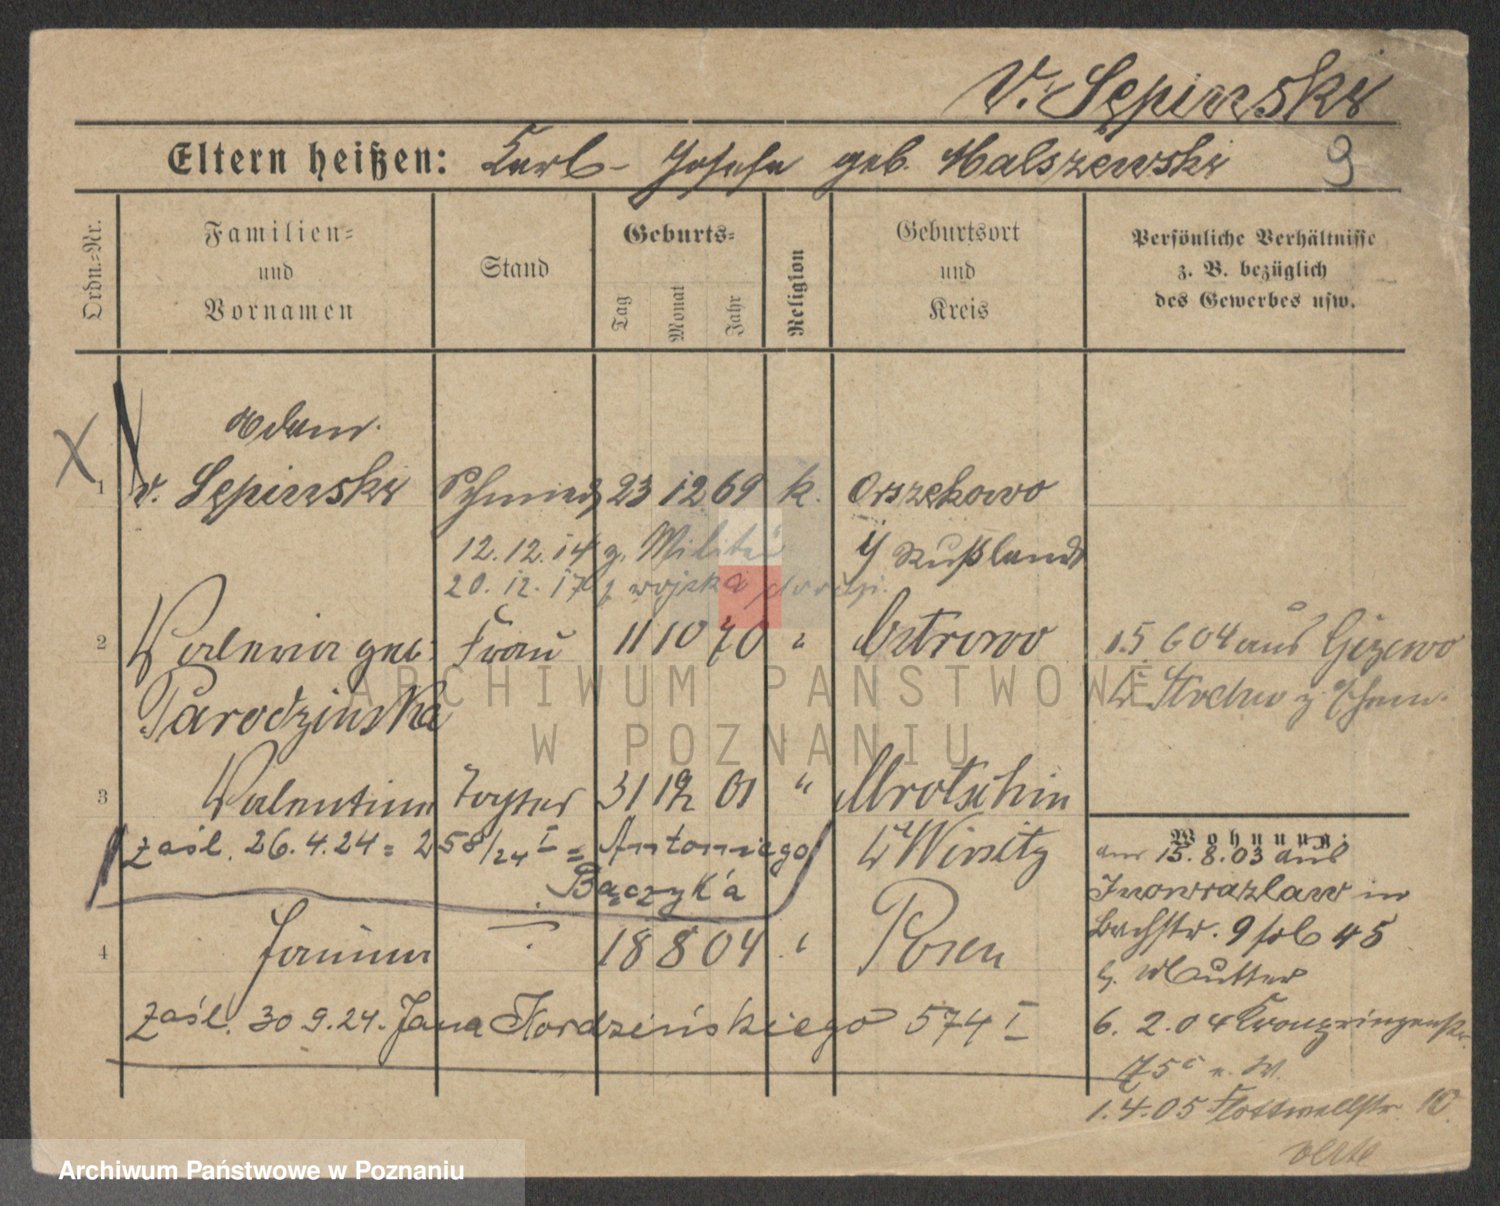 v. Sępinski
Eltern heißen: Karl - Josefa geb. Malszewski 9
Ordn.-Nr.
Familien-
und
Vornamen
Stand
Geburts-
Tag Monat Jahr
Religion
Geburtsort
und
Kreis
Persönliche Verhältnisse
z. B. bezüglich
des Gewerbes usw.
Adam
1 v. Sępinski Schmied 23 12 69 k. Orszekowo
12.12.14 z. Militär i/ Rußland
20.12.17 z wojska
2 Valeria geb. Frau 11 10 70 " Ostrowo
Parodzinska
15 6 04 aus Gizewo
3 Valentina Tochter 31 12 01 " Mrotschin
zaśl. 26.4.24 = 258/24 I = Antoniego
Bączyk'a
Kr Wirsitz
4 Janina 18 8 04 " Posen
zaśl. 30 9.24. Jana Kordzińskiego 574 I
Wohnung:
am 15.8.03 aus
Inowrazlaw in
Bachstr. 9 45
b. Mutter
6. 2.04 Kronprinzenstr.
75
1.4.05 Flottwellstr. 10
Archiwum Państwowe w Poznaniu
W POZNANIU
Archiwum Państwowe w Poznaniu